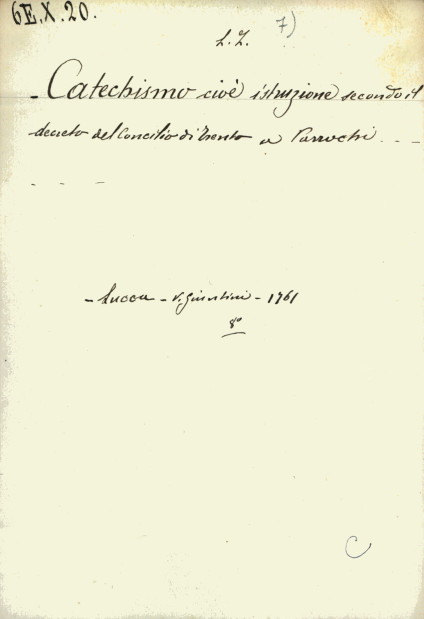 6E.X.20.
7)
L.Z.
- Catechismo cioè istruzione secondo il
decreto del Concilio di Trento a Parrochi . . _ _
_ _ _
- Lucca - V. Giuntini - 1761
8°
C